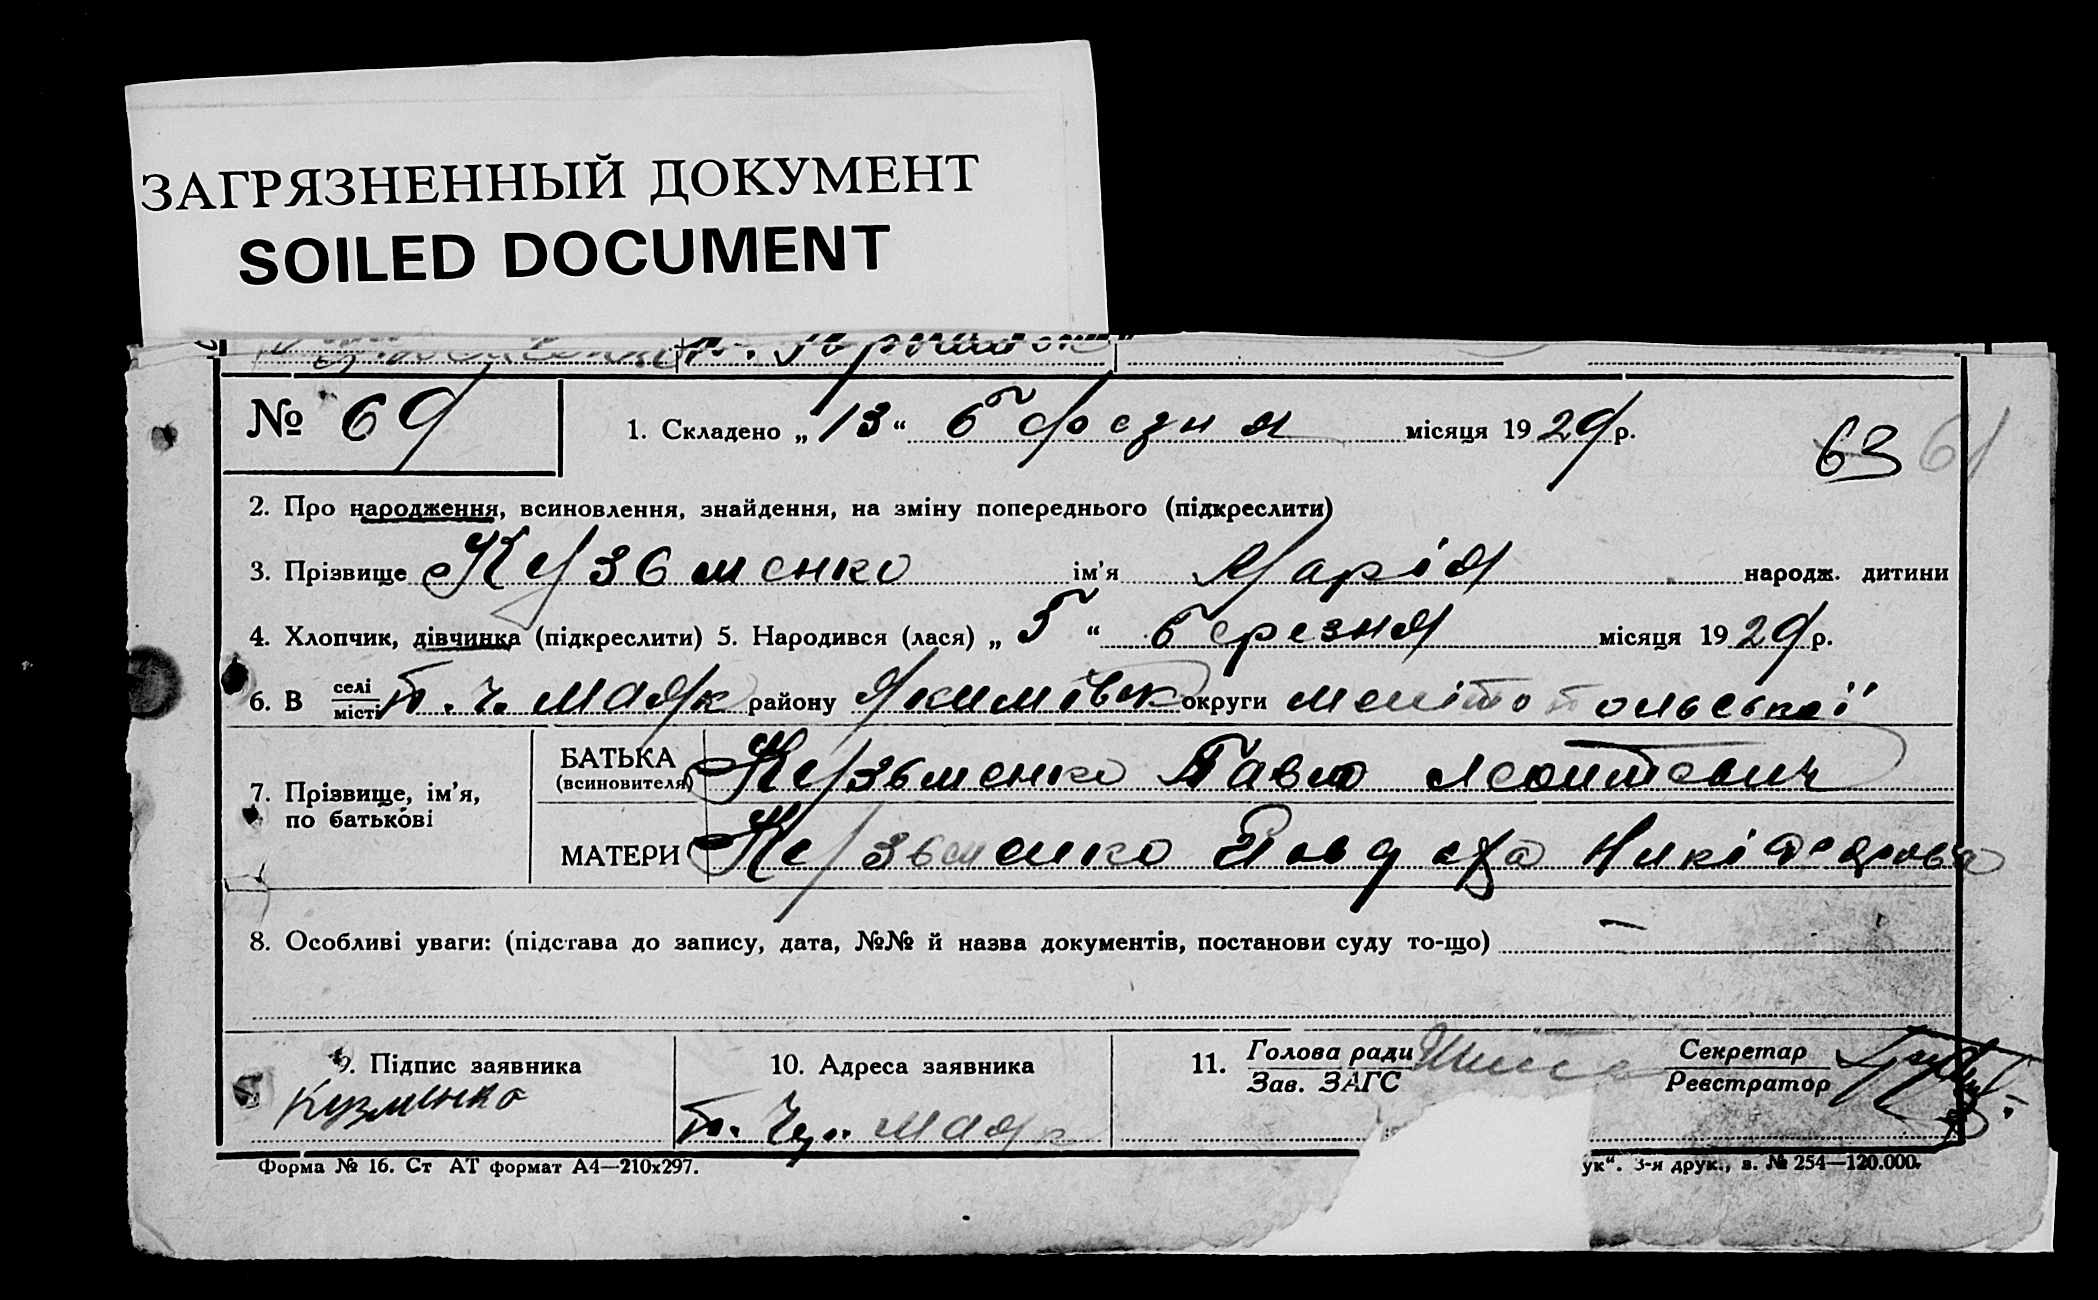 ЗАГРЯЗНЕННЫЙ ДОКУМЕНТ
SOILED DOCUMENT
№ 69 1. Складено „13“ березня місяця 1929 р.
63 61
2. Про народження, всиновлення, знайдення, на зміну попереднього (підкреслити)
3. Прізвище Кузьменко ім'я Марія народж. дитини
4. Хлопчик, дівчинка (підкреслити) 5. Народився (лася) „5“ березня місяця 1929 р.
6. В селі місті т. ч. Маяк району Якимівськ округи Мелітопольської
7. Прізвище, ім'я, по батькові
БАТЬКА (всиновителя) Кузьменко Павло
МАТЕРИ Кузьменко
8. Особливі уваги: (підстава до запису, дата, №№ й назва документів, постанови суду то-що) —
9. Підпис заявника 10. Адреса заявника 11. Голова ради Зав. ЗАГС Секретар Реєстратор
Кузменко Маяк
Форма № 16. Ст АТ формат А4—210х297. ук“. 3-я друк., з. № 254—120.000.